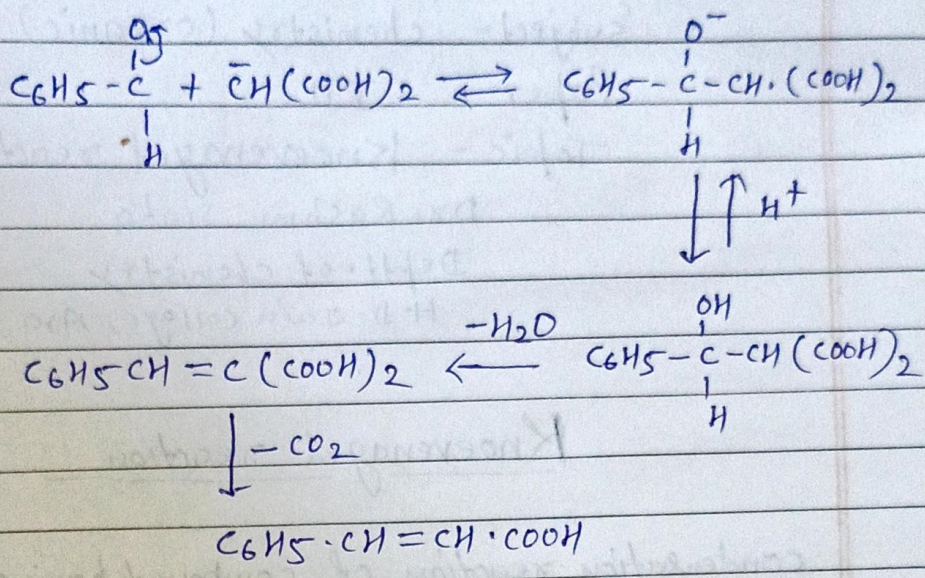 O O⁻
C6H5-C + C̄H(COOH)2 ⇌ C6H5-C-CH.(COOH)2
H H
↓↑ H+
OH
C6H5CH=C(COOH)2 ← -H2O C6H5-C-CH(COOH)2
H
↓ -CO2
C6H5·CH=CH·COOH